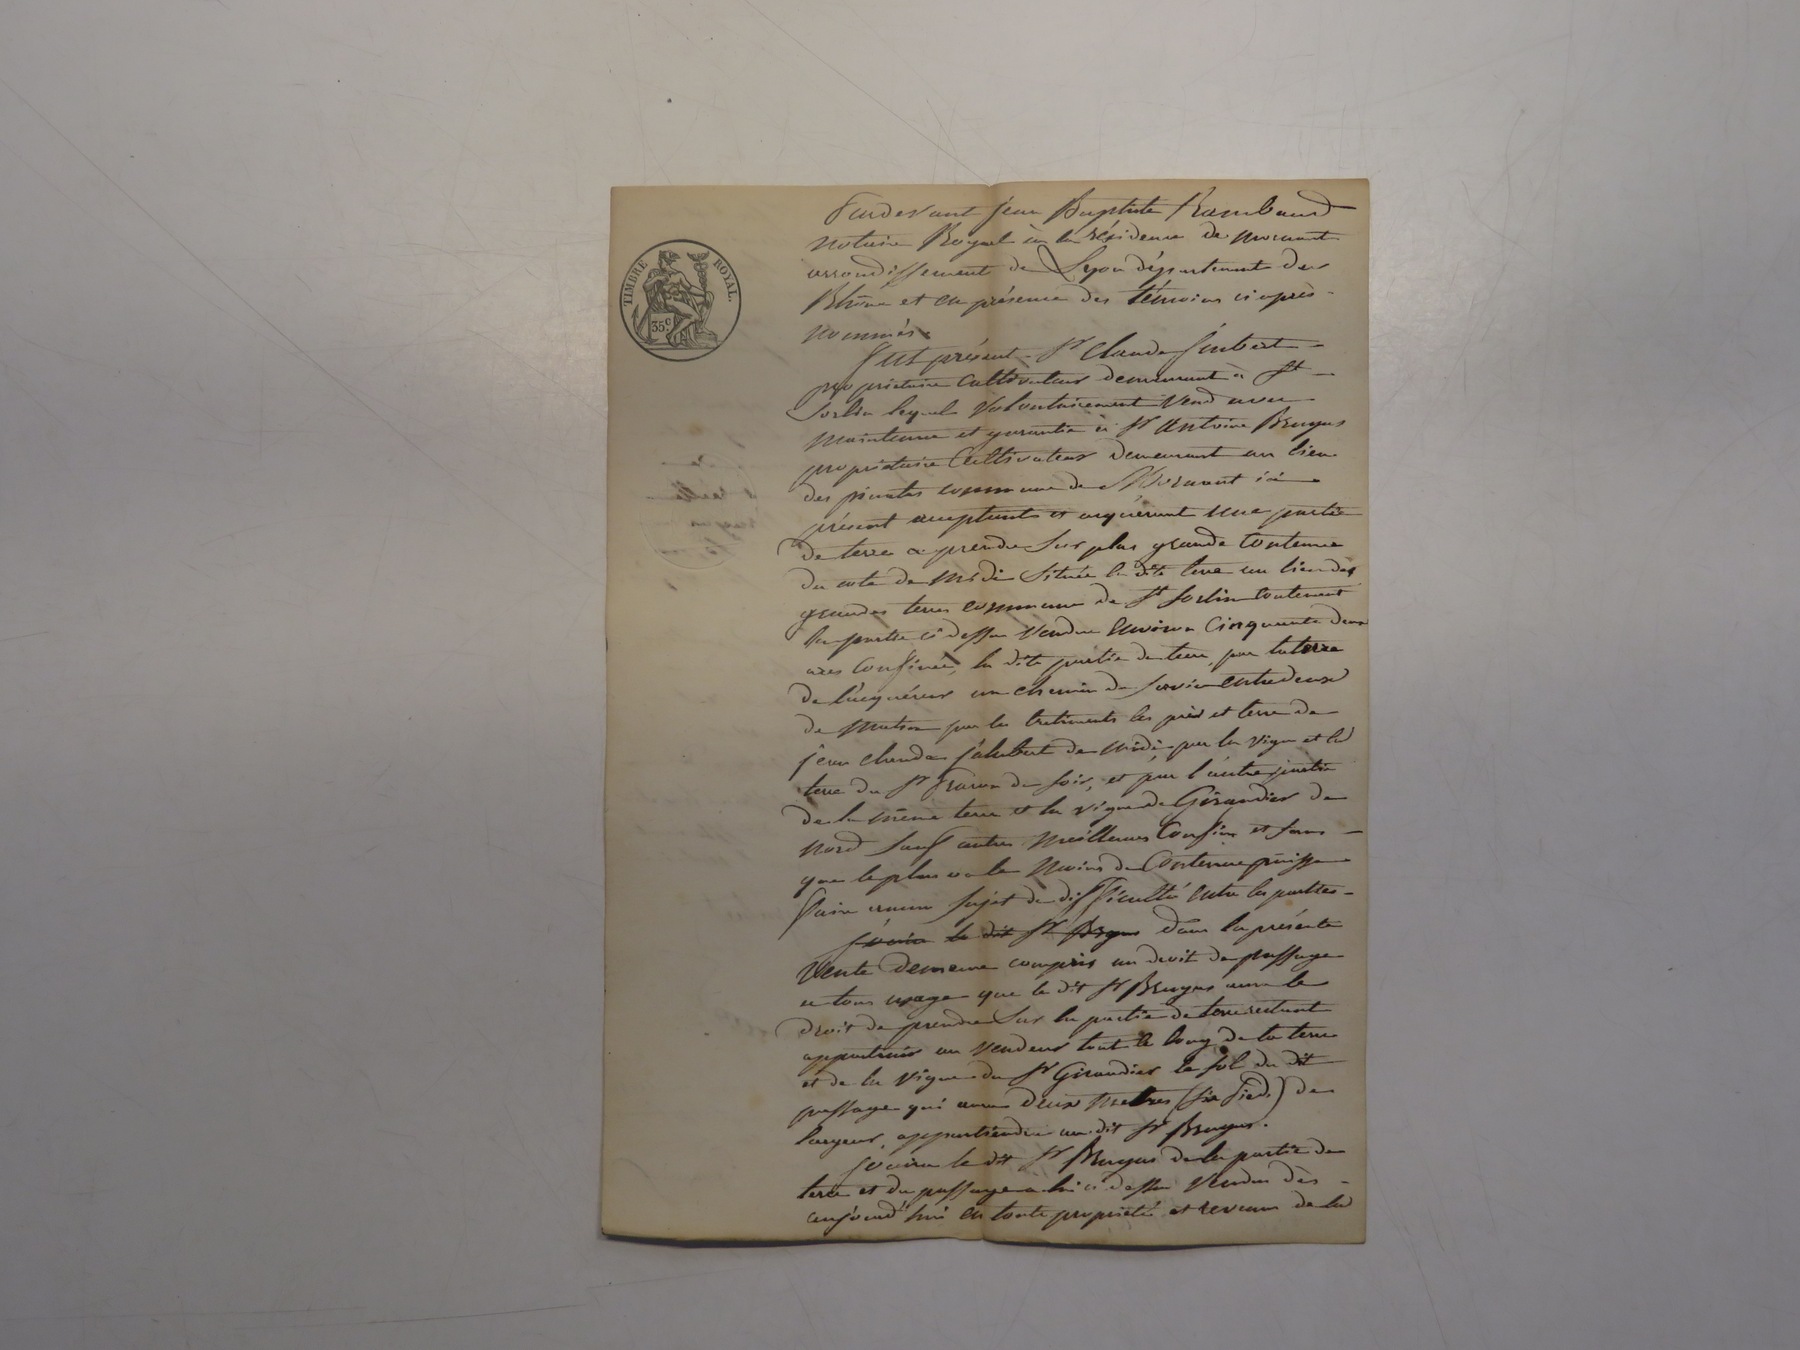 TIMBRE ROYAL.
35c
Pardevant jean Baptiste Rambaud
notaire Royal à la résidence de mornant
arrondissement de Lyon département du
Rhône et en présence des témoins ci après
nommés.
fut présent Sr Claude
propriétaire Cultivateur demeurant à St
Sorlin lequel Volontairement Vend avec
Maintenue et garantie à Sr Antoine Bruyas
propriétaire Cultivateur demeurant au lieu
des commune de Mornant ici
présent acceptant et acquérant une partie
de terre a prendre Sur plus grande Contenue
du coté de Midi Située la dite terre au lieu des
grandes terres commune de St Sorlin Contenant
la partie ci dessu Vendue Environ Cinquante deux
ares Confinée, la dite partie de terre, par la terre
de l'acquéreur un chemin de Service entredeux
de Matin par les les près et terre de
jean Claude de Midi par la vigne et la
terre du Sr de soir, et par l'autre partie
de la même terre et la vigne de Girandier de
nord Sauf autres Meilleurs Confins et sans
que le plus ou le Moins de Contenue puisse
faire aucun Sujet de difficulté entre les parties
jouira le dit Sr Bruyas dans la présente
Vente demeure compris un droit de passage
a tous usage que le dit Sr Bruyas aura le
droit de prendre Sur la partie de terre restant
appartenir au Vendeur tout le long de la terre
et de la Vigne du Sr Girandier le sol du dit
passage qui aura deux Metres (six pieds) de
largeur, appartiendra au dit Sr Bruyas.
jouira le dit Sr Bruyas de la partie de
terre et du passage a lui ci dessu Vendus dès
aujourd'hui en toute propriété et revenus de la